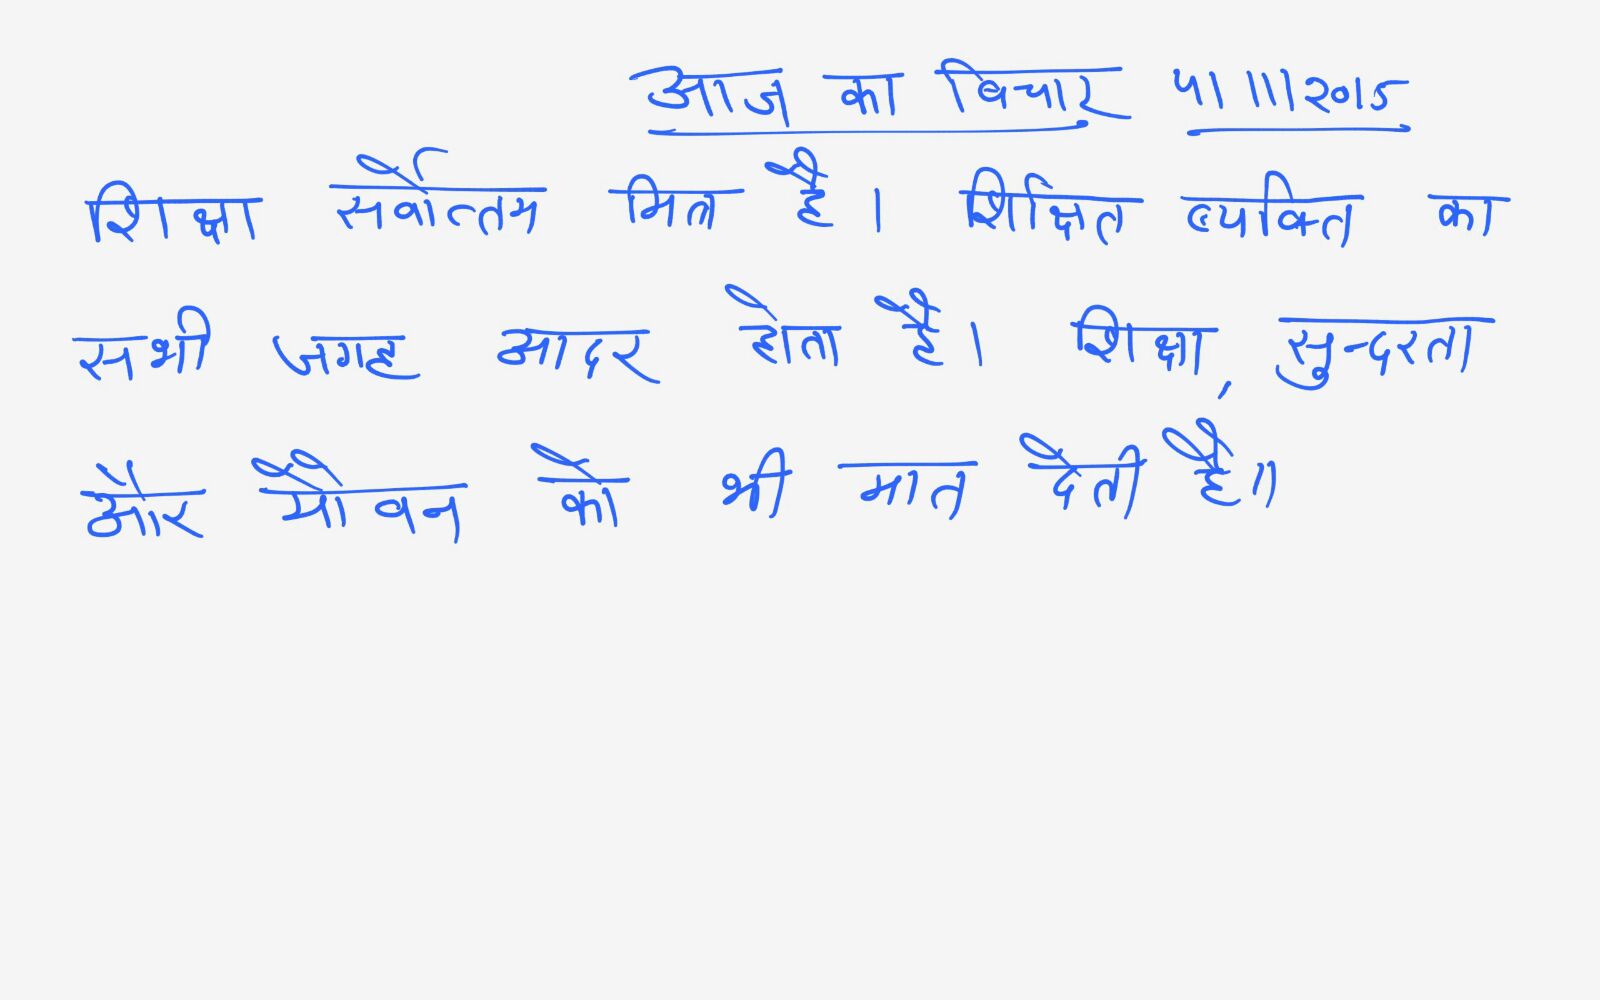 आज का विचार 5/11/2015
शिक्षा सर्वोत्तम मित्र है। शिक्षित व्यक्ति का
सभी जगह आदर होता है। शिक्षा, सुन्दरता
और यौवन को भी मात देती है॥